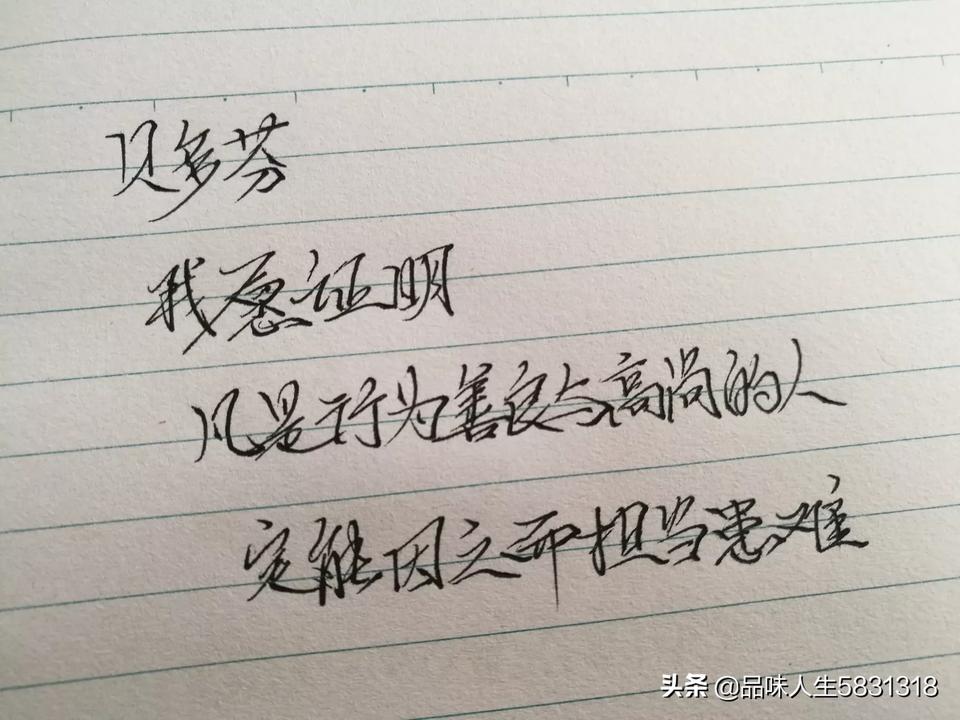 贝多芬
我愿证明
凡是行为善良与高尚的人
定能因之而担当患难
头条 @品味人生5831318